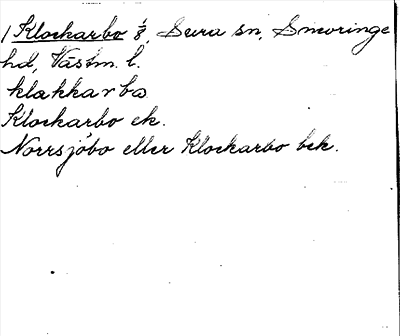 Klockarbo 1/8, Sura sn, Snevringe
hd, Västm. l.
klakkarbo
Klockarbo ek.
Norrsjöbo eller Klockarbo bek.